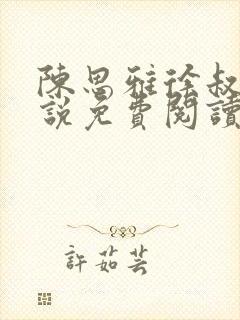 陳思雅徐叔
說免費閱讀
許茹芸